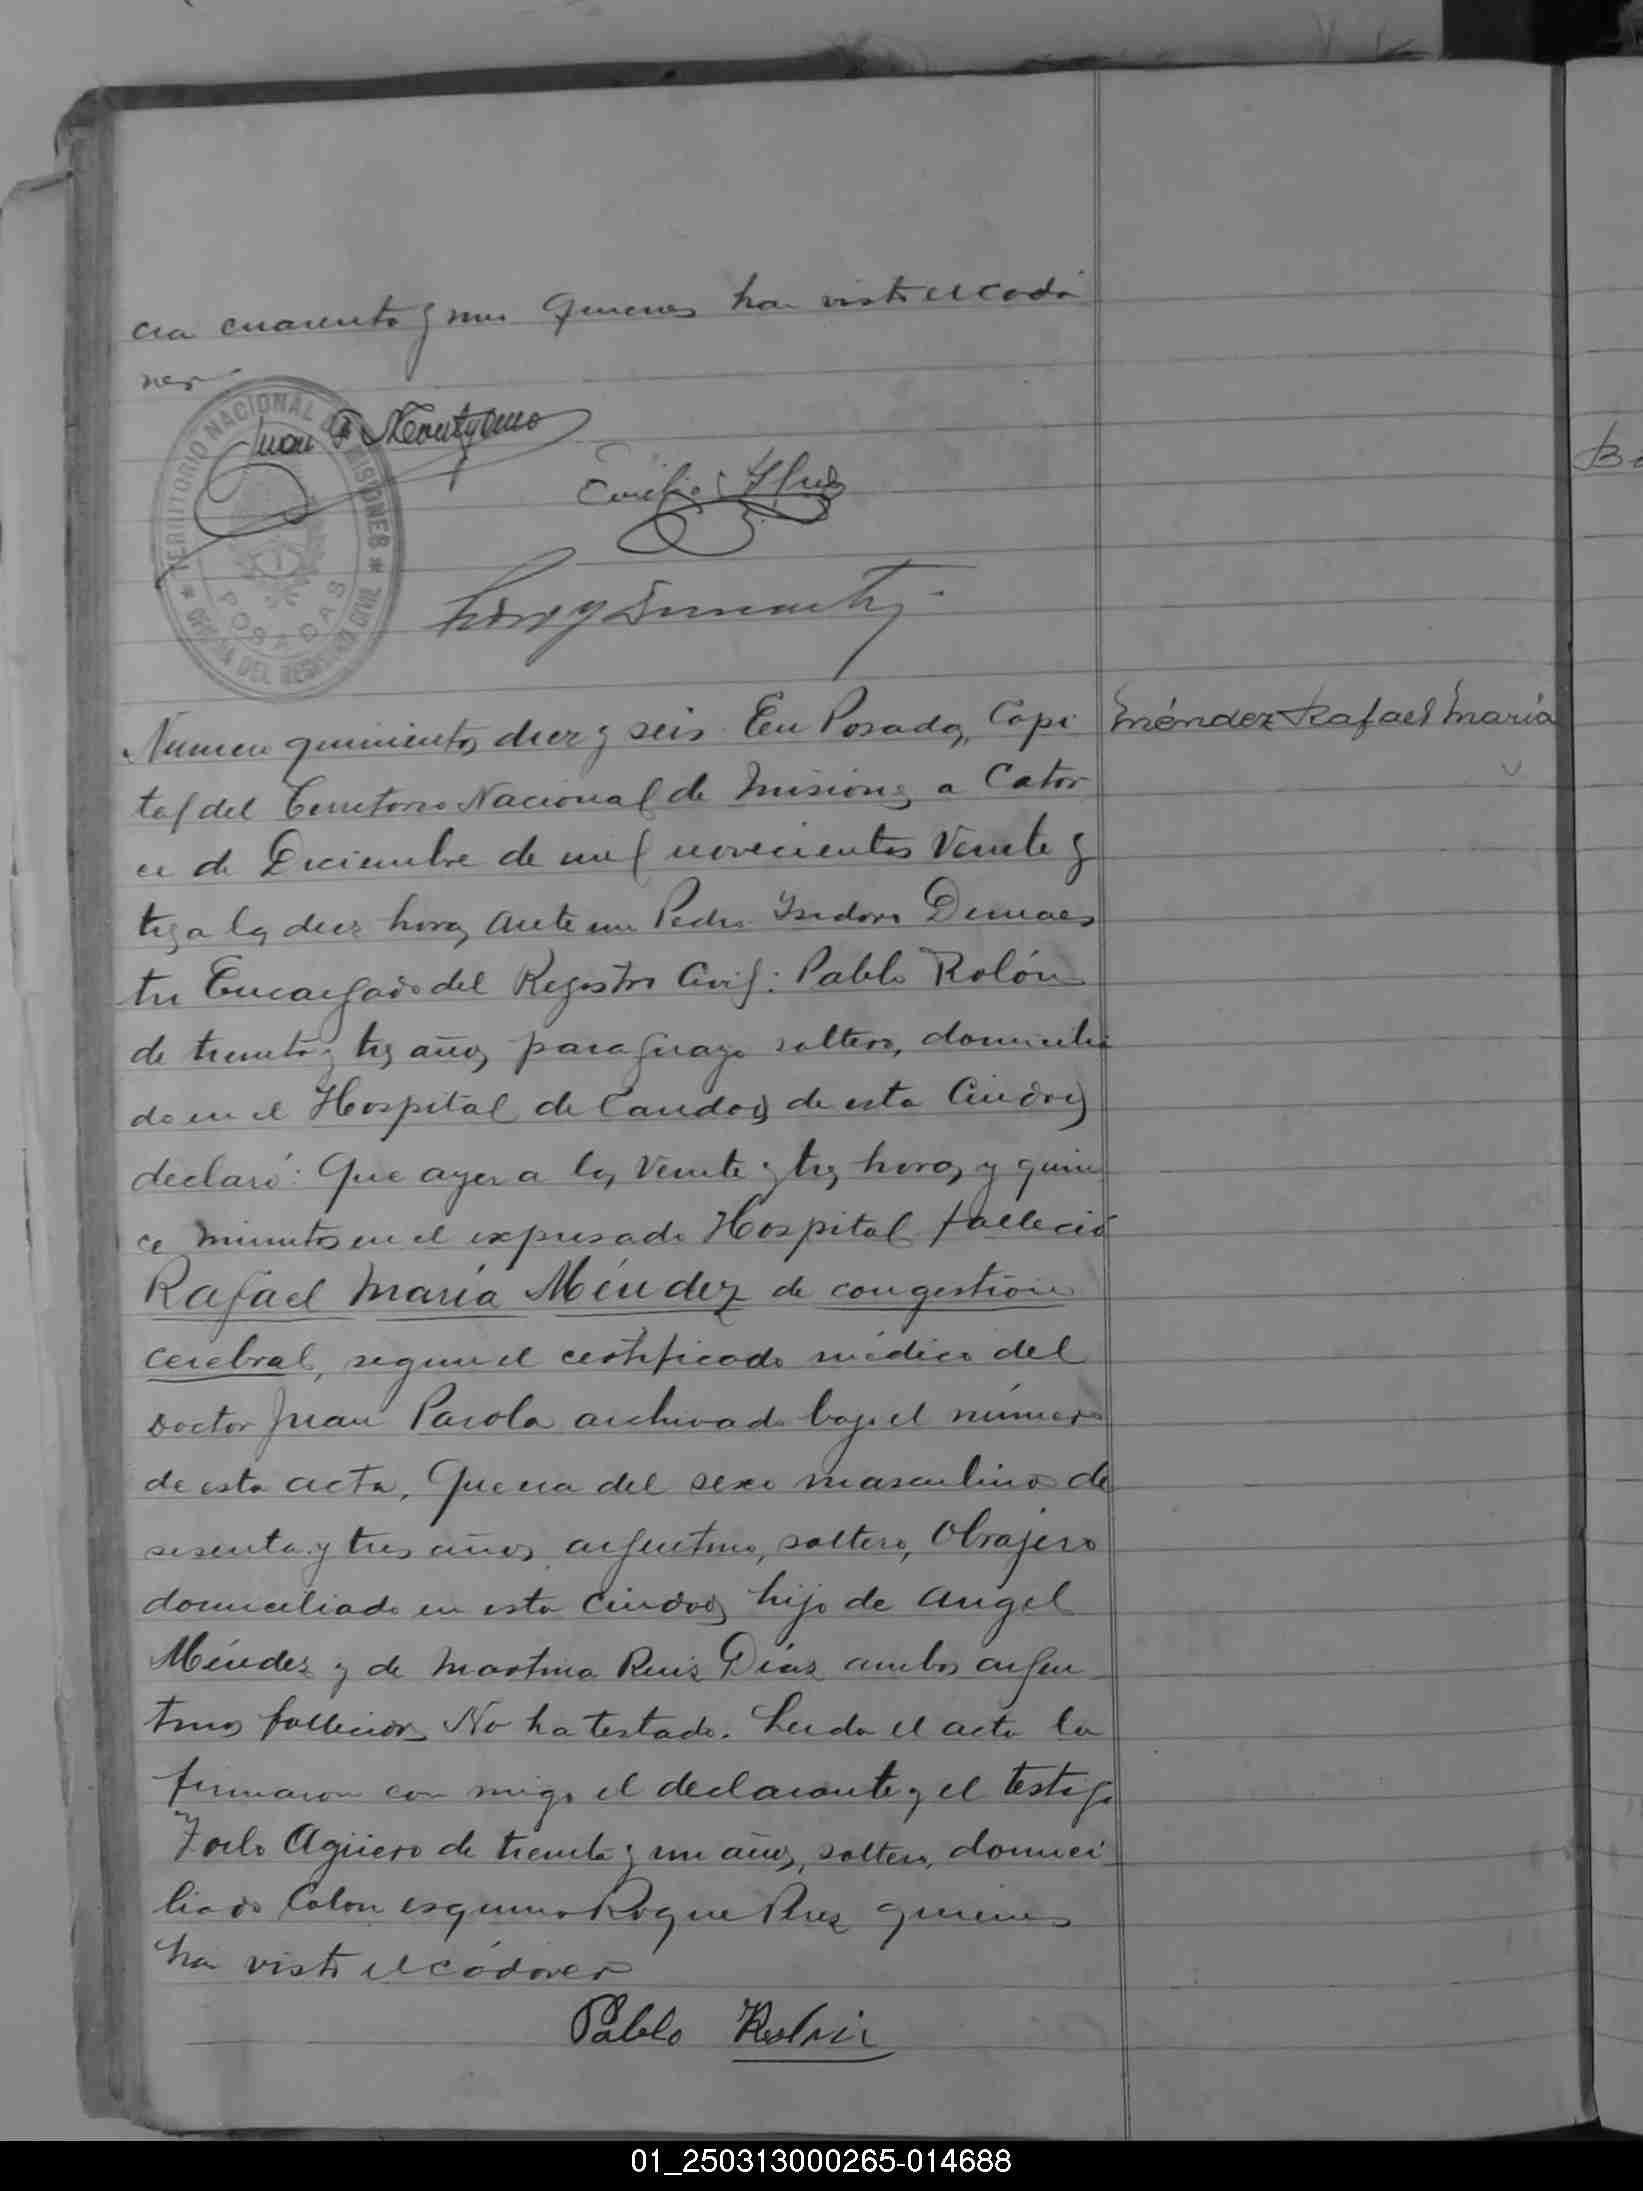 cia cuarenta y uno Quienes han visto el cadá
ver
TERRITORIO NACIONAL DE MISIONES
OFICINA DEL REGISTRO CIVIL
POSADAS
Juan
Emilio
Numero quinientos diez y seis. En Posadas, Capi
tal del Territorio Nacional de Misiones a Cator
ce de Diciembre de mil novecientos Veinte y
tres a las diez horas ante mi Pedro Isidoro Demaes
tri Encargado del Registro Civil: Pablo Rolón
de treinta y tres años, paraguayo soltero, domicilia
do en el Hospital de Caridad de esta Ciudad
declaró: Que ayer a las veinte y tres horas y quin
ce minutos en el expresado Hospital falleció
Rafael María Méndez de congestión
cerebral, segun el certificado médico del
Doctor Juan Parola archivado bajo el número
de esta acta, Que era del sexo masculino de
sesenta y tres años argentino, soltero, Obrajero
domiciliado en esta Ciudad, hijo de Angel
Méndez y de Martina Ruiz Díaz ambos argen
tinos fallecidos No ha testado. Leida el acta la
firmaron con migo el declarante y el testigo
Zoilo Agüero de treinta y un años, soltero, domici
liado Colon esquina Roque Perez quienes
han visto el cádaver
Pablo Rolón
Méndez Rafael María
01_250313000265-014688